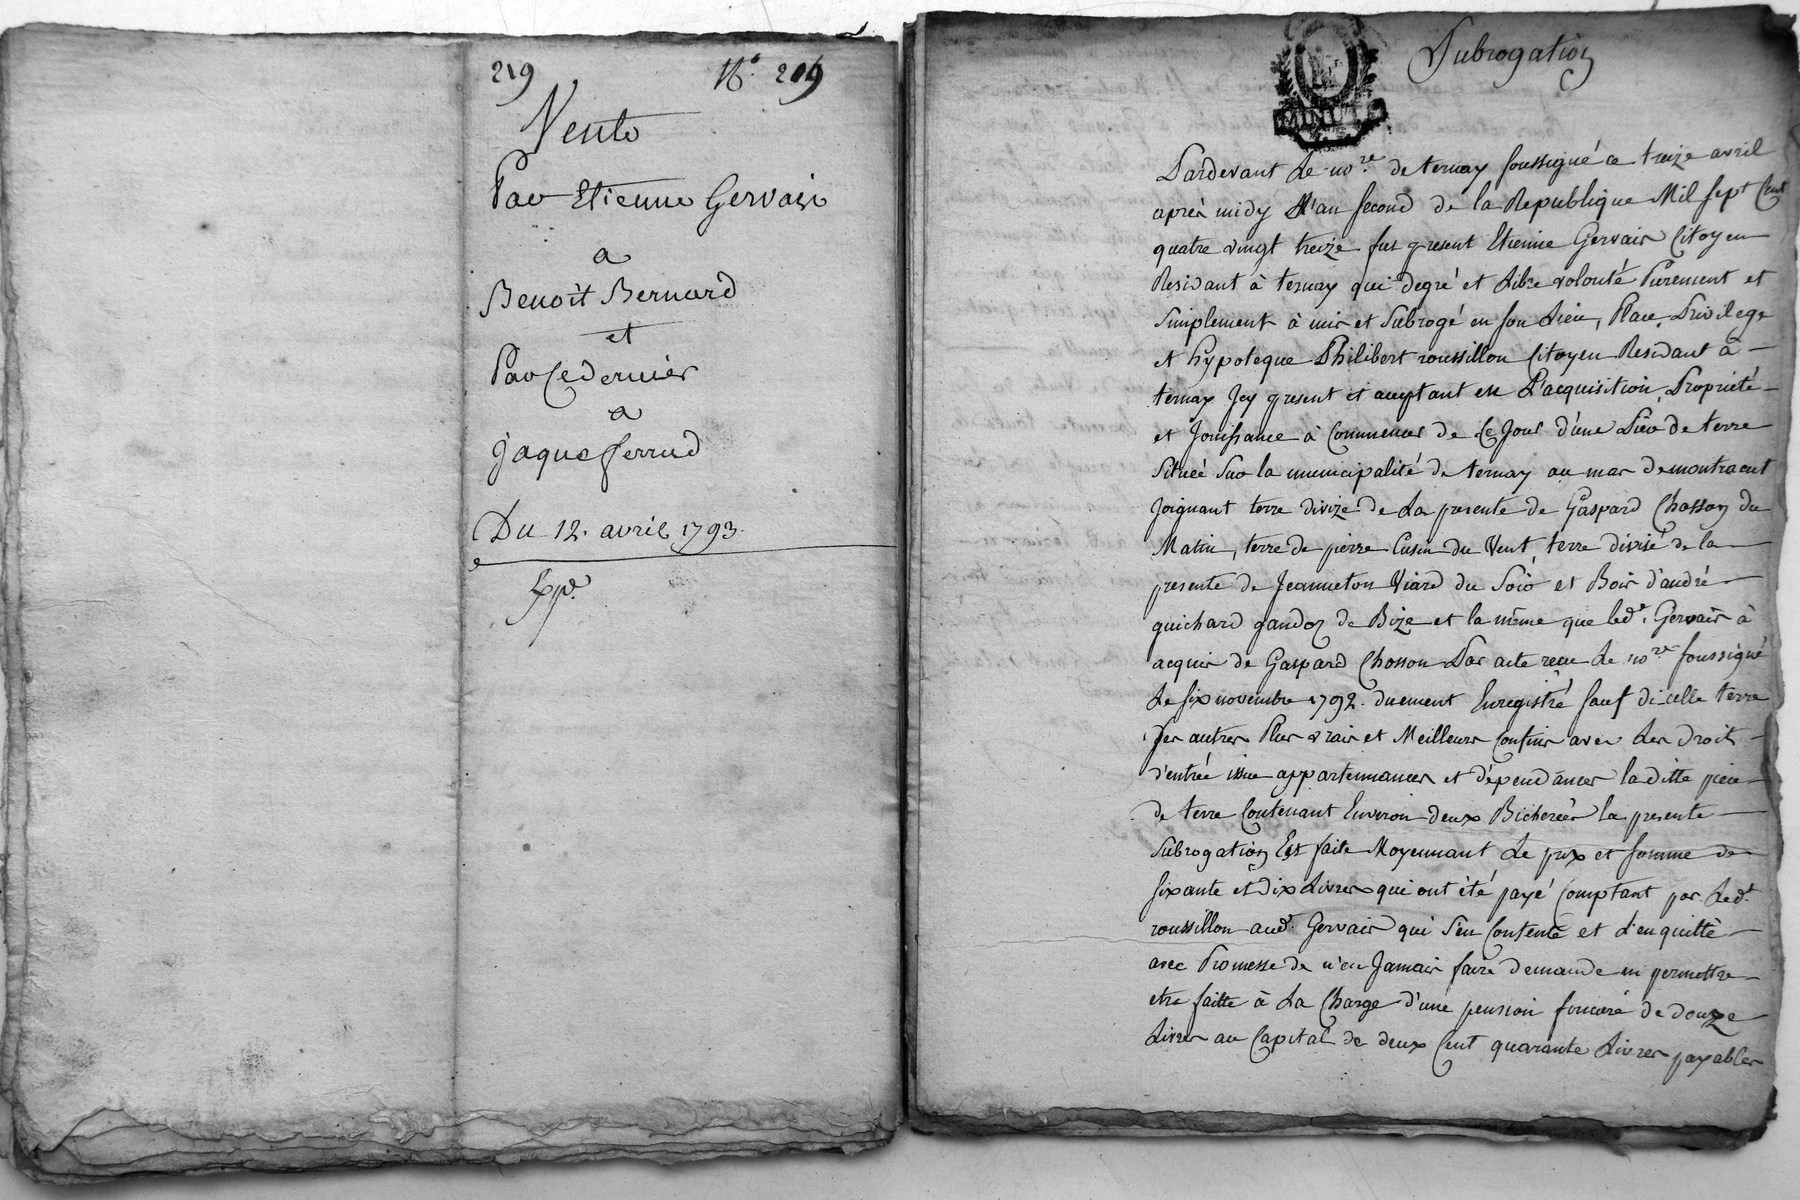 219 N°. 219
Vente
Par Etienne Gervais
a
Benoît Bernard
et
Par Ce dernier
a
jaque ferrud
Du 12. avril 1793.
Exp.
Subrogation
MINUTE
Pardevant Le no.re de ternay soussigné ce treize avril
après midy L'an second de la Republique Mil sept Cent
quatre vingt treize fut present Etienne Gervais Citoyen
Residant à ternay qui degré et Libre volonté Purement et
Simplement à mis et Subrogé en son Lieu, Place, Privilege
et hypoteque Philibert roussillon Citoyen Residant à
ternay Icy present et aceptant en L'acquisition, Proprieté
et Jouissance à Commencer de Ce Jour d'une Piéce de terre
Située Sur la municipalité de ternay au mas demontracut
Joignant terre divizé de La presente de Gaspard Chosson du
Matin, terre de pierre Cusin du Vent, terre divisé de la
presente de Jeanneton Viard du Soir et Bois d'andré
quichard gandoz de Bize et la même que led.t Gervais à
acquis de Gaspard Chosson Par acte recu Le no.re soussigné
Le six novembre 1792. duement Enregistré sauf di-celle terre
Ses autres Plus vrais et Meilleurs Confins avec Les droits
d'entrée issue appartennances et dépendances la ditte piéce
de terre Contenant Environ deux Bicherées la presente
Subrogation Est faite Moyennant Le prix et somme de
sixante et Dix Livres qui ont été payé Comptant par Led.t
roussillon aud.t Gervais qui s'en Contente et d'en quitte
avec Promesse de n'en Jamais faire demande en permettre
etre faitte à La Charge d'une pension fonciere de douze
Livres au Capital de deux Cent quarante Livres payables